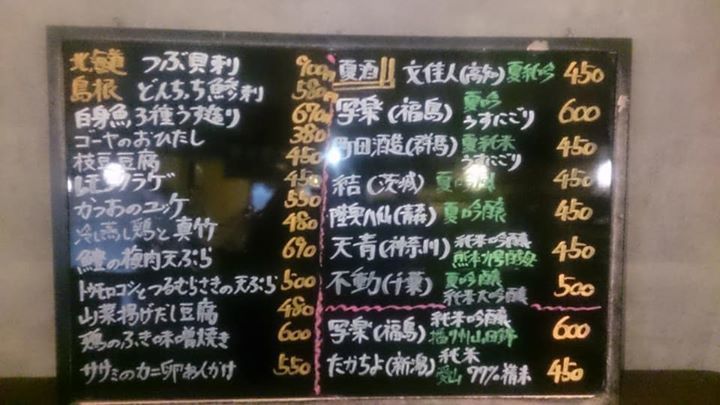 北海道 つぶ貝刺 900円
島根 どんちっち鯵刺 580円
白身魚3種うす造り 670
ゴーヤのおひたし 380
枝豆豆腐 450
クラゲ 450
かつおのユッケ 550
冷し蒸し鶏と真竹 480
の梅肉天ぷら 690
トウモロコシとつるむらさきの天ぷら 500
山菜揚げだし豆腐 480
鶏のふき味噌焼き 600
ササミのカニ卵あんかけ 550
夏酒!! 文佳人(高知) 夏純吟 450
写楽(福島) 夏吟 うすにごり 600
町田酒造(群馬) 夏純米 うすにごり 450
結(茨城) 夏吟 450
陸奥八仙(青森) 夏吟醸 450
天青(神奈川) 純米吟醸 450
不動(千葉) 夏吟醸 純米大吟醸 500
写楽(福島) 純米吟醸 播州山田錦 600
たかちよ(新潟) 純米 愛山 77%精米 450